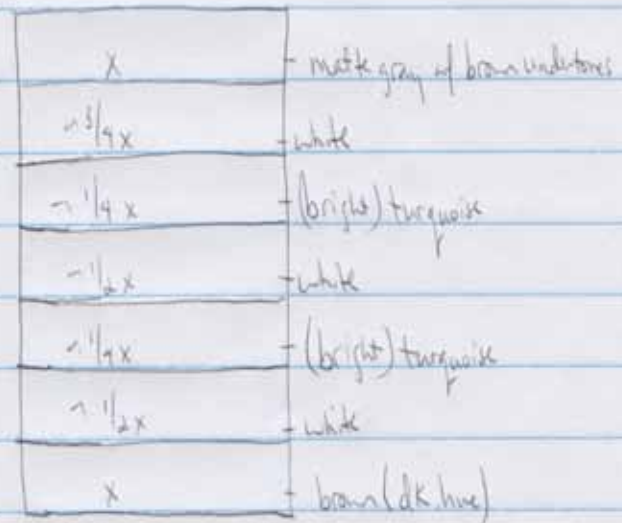 x - matte gray w/ brown undertones
~3/4x - white
~1/4x - (bright) turquoise
~1/2x - white
~1/4x - (bright) turquoise
~1/2x - white
x - brown (dk hue)